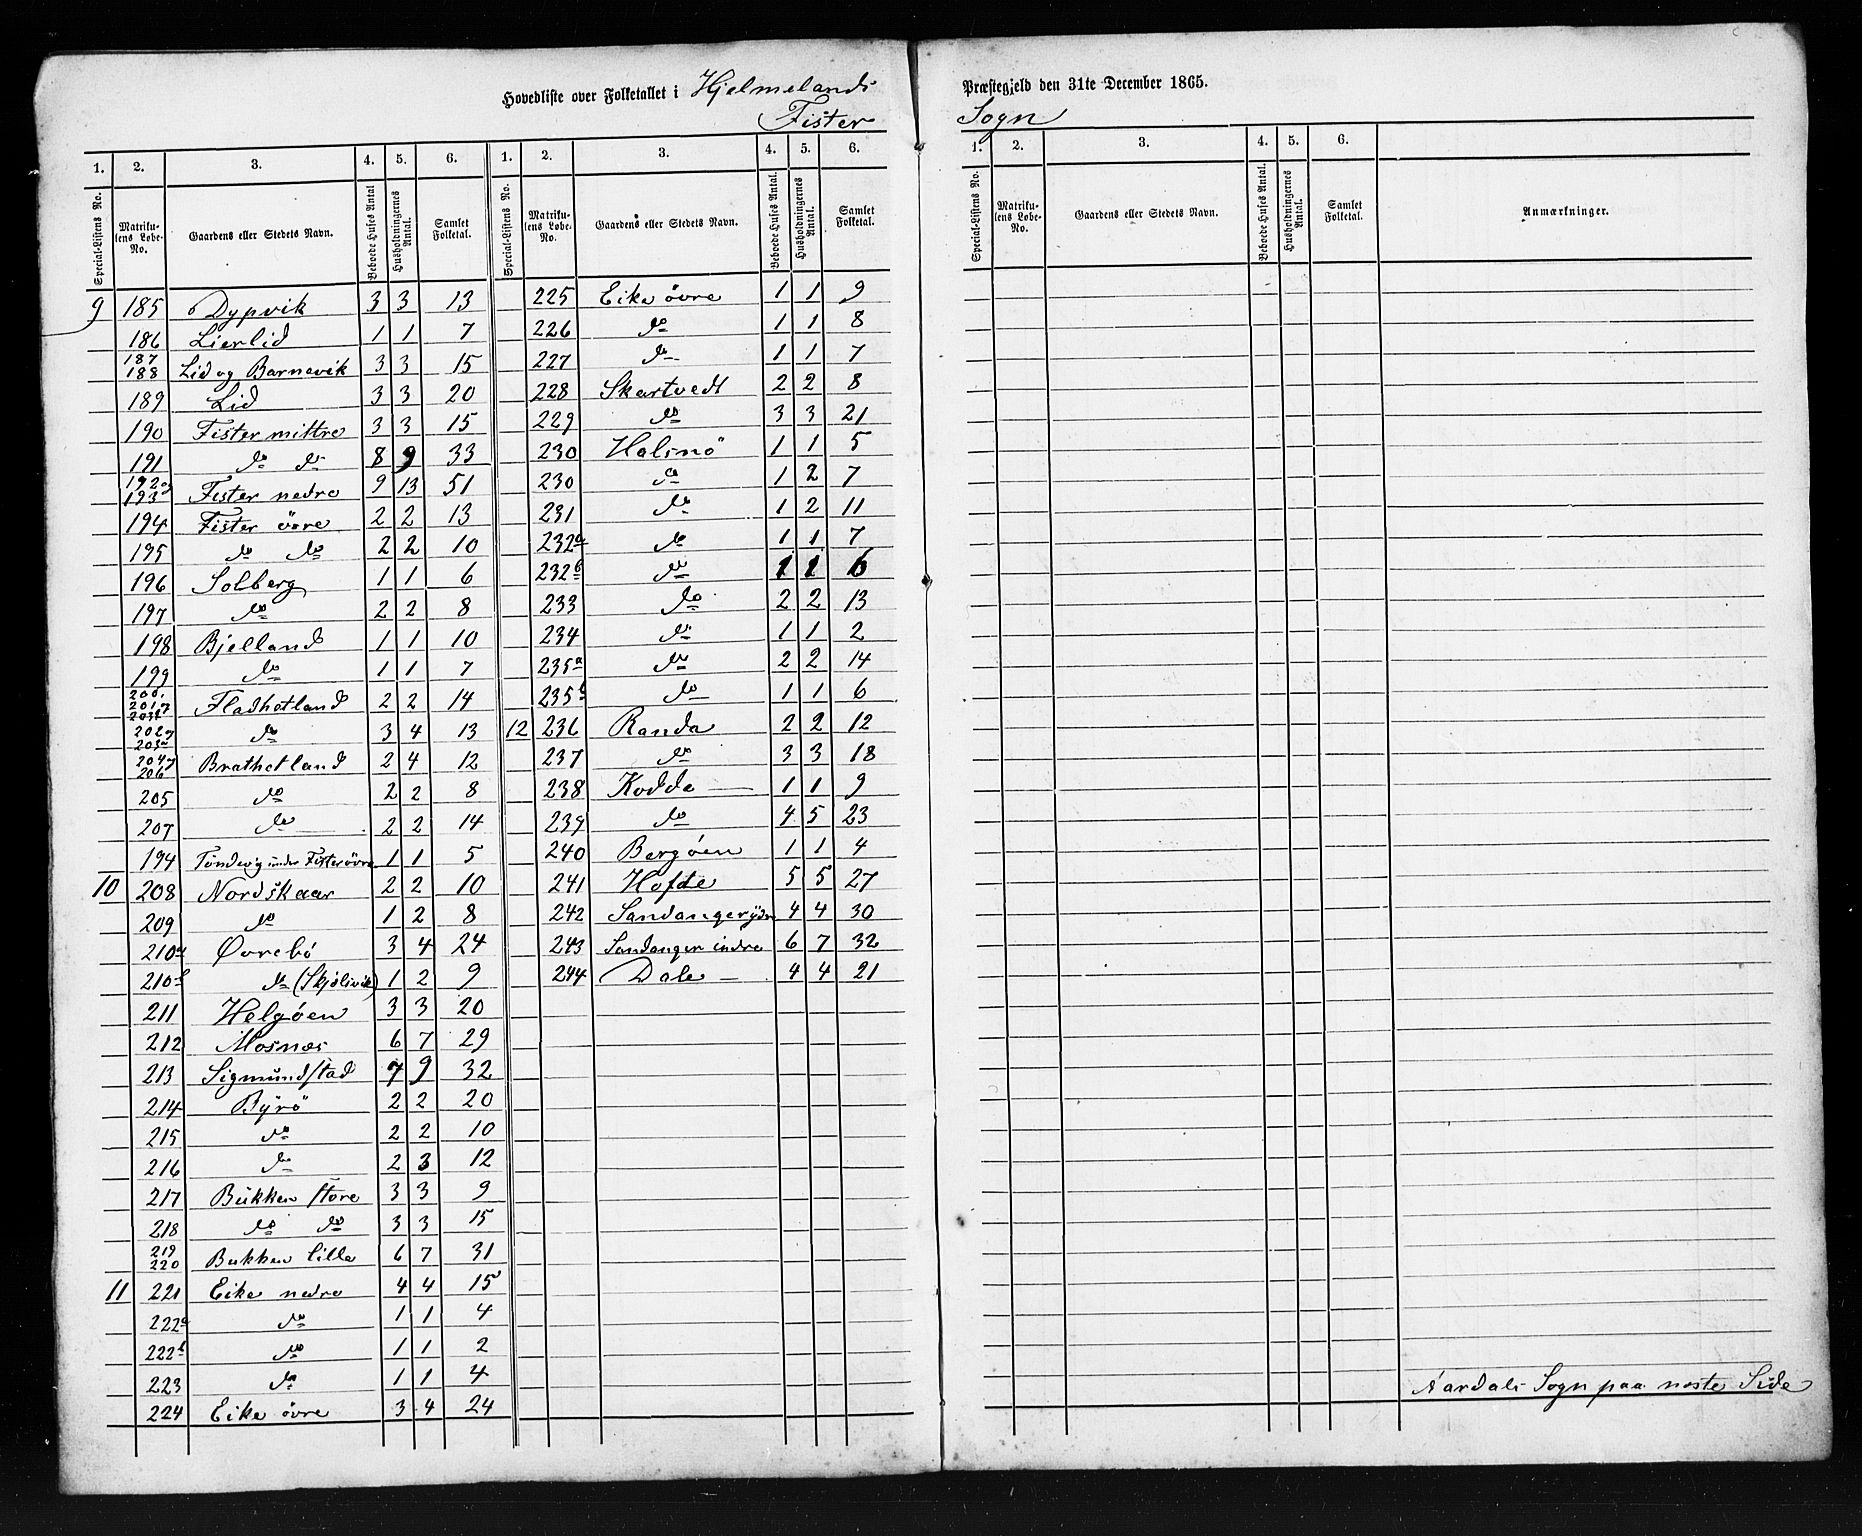 Hovedliste over Folketallet i Hjelmelands Præstegjeld den 31te December 1865.
Fister Sogn
1. 2. 3. 4. 5. 6. 1. 2. 3. 4. 5. 6. 1. 2. 3. 4. 5. 6.
Special-Listens No. Matrikulens Løbe-No. Gaardens eller Stedets Navn. Beboede Huses Antal Husholdningernes Antal. Samlet Folketal. Special-Listens No. Matrikulens Løbe-No. Gaardens eller Stedets Navn. Beboede Huses Antal. Husholdningernes Antal. Samlet Folketal. Special-Listens No. Matrikulens Løbe-No. Gaardens eller Stedets Navn. Beboede Huses Antal. Husholdningernes Antal. Samlet Folketal. Anmærkninger.
9 185 Dypvik 3 3 13 225 Eike övre 1 1 9
186 Lierlid 1 1 7 226 do 1 1 8
187 188 Lid og Barnevik 3 3 15 227 do 1 1 7
189 Lid 3 3 20 228 Skartvedt 2 2 8
190 Fister mittre 3 3 15 229 do 3 3 21
191 do do 8 9 33 230 Halsnö 1 1 5
192 og 193 Fister nedre 9 13 51 230 do 1 2 7
194 Fister övre 2 2 13 231 do 1 2 11
195 do do 2 2 10 232a do 1 1 7
196 Solberg 1 1 6 232b do 1 1 6
197 do 2 2 8 233 do 2 2 13
198 Bjelland 1 1 10 234 do 1 1 2
199 do 1 1 7 235a do 2 2 14
200, 201 og Fladhetland 2 2 14 235b do 1 1 6
202 og 203a do 3 4 13 12 236 Randa 2 2 12
204 og 206 Brathetland 2 4 12 237 do 3 3 18
205 do 2 2 8 238 Kodde 1 1 9
207 do 2 2 14 239 do 4 5 23
194 Töndevig under Fister övre 1 1 5 240 Bergöen 1 1 4
10 208 Nordskaar 2 2 10 241 Hofte 5 5 27
209 do 1 2 8 242 Sandanger ydre 4 4 30
210a Øvrebö 3 4 24 243 Sandanger indre 6 7 32
210b do (Skjölivik) 1 2 9 244 Dale 4 4 21
211 Helgöen 3 3 20
212 Mosnæs 6 7 29
213 Sigmundstad 7 9 32
214 Byrö 2 2 20
215 do 2 2 10
216 do 2 3 12
217 Bukken store 3 3 9
218 do do 3 3 15
219 220 Bukken lille 6 7 31
11 221 Eike nedre 4 4 15
222a do 1 1 4
222b do 1 1 2
223 do 1 1 4
224 Eike övre 3 4 24
Aardals Sogn paa næste Side